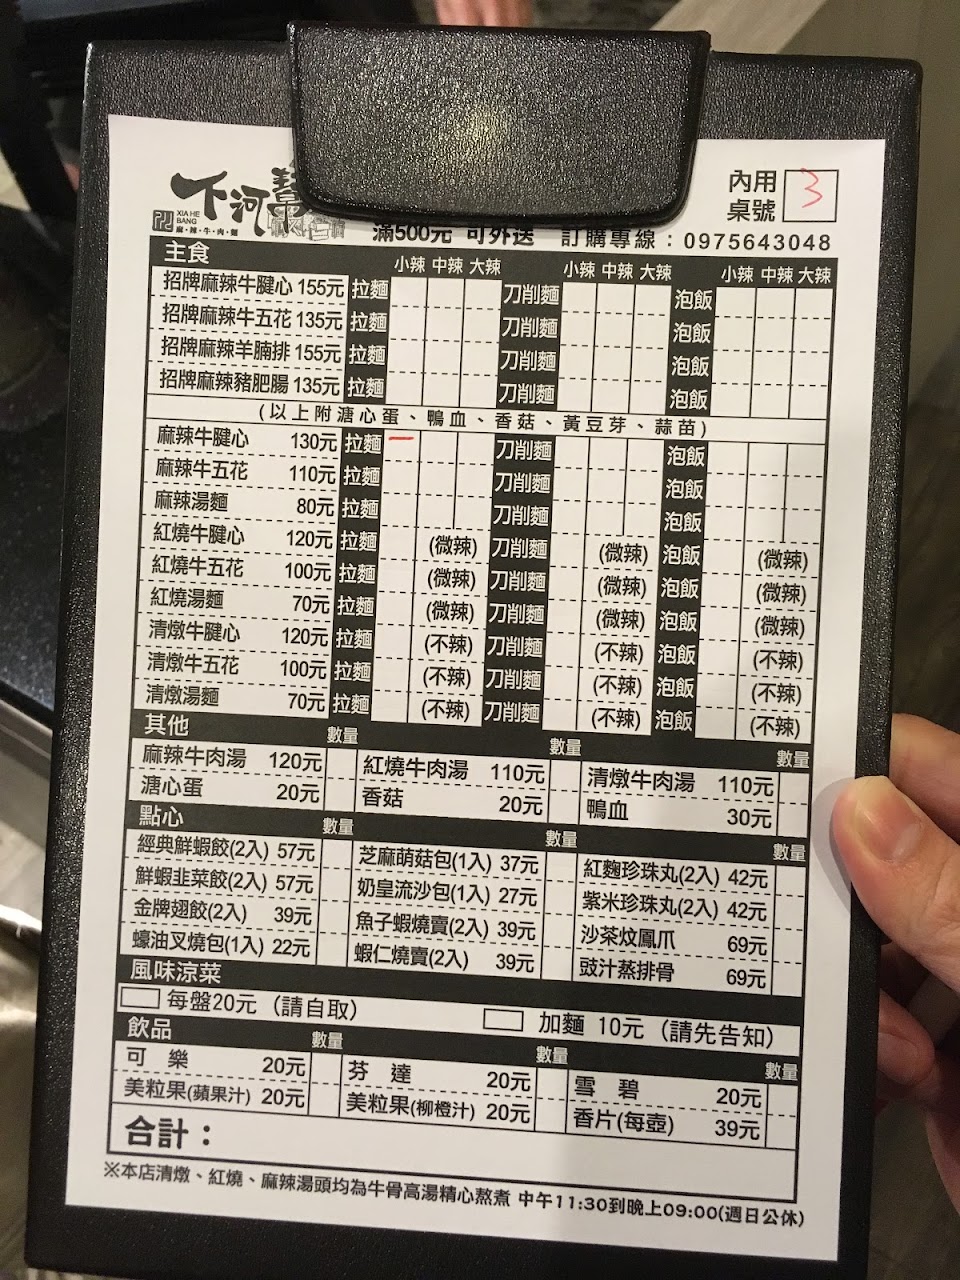 下河幫
XIA HE BANG
麻・辣・牛・肉・麵
內用桌號 3
滿500元 可外送 訂購專線：0975643048
主食 小辣 中辣 大辣 小辣 中辣 大辣 小辣 中辣 大辣
招牌麻辣牛腱心 155元 拉麵 刀削麵 泡飯
招牌麻辣牛五花 135元 拉麵 刀削麵 泡飯
招牌麻辣羊腩排 155元 拉麵 刀削麵 泡飯
招牌麻辣豬肥腸 135元 拉麵 刀削麵 泡飯
(以上附溏心蛋、鴨血、香菇、黃豆芽、蒜苗)
麻辣牛腱心 130元 拉麵 一 刀削麵 泡飯
麻辣牛五花 110元 拉麵 刀削麵 泡飯
麻辣湯麵 80元 拉麵 刀削麵 泡飯
紅燒牛腱心 120元 拉麵 (微辣) 刀削麵 (微辣) 泡飯 (微辣)
紅燒牛五花 100元 拉麵 (微辣) 刀削麵 (微辣) 泡飯 (微辣)
紅燒湯麵 70元 拉麵 (微辣) 刀削麵 (微辣) 泡飯 (微辣)
清燉牛腱心 120元 拉麵 (不辣) 刀削麵 (不辣) 泡飯 (不辣)
清燉牛五花 100元 拉麵 (不辣) 刀削麵 (不辣) 泡飯 (不辣)
清燉湯麵 70元 拉麵 (不辣) 刀削麵 (不辣) 泡飯 (不辣)
其他 數量 數量 數量
麻辣牛肉湯 120元 紅燒牛肉湯 110元 清燉牛肉湯 110元
溏心蛋 20元 香菇 20元 鴨血 30元
點心 數量 數量 數量
經典鮮蝦餃(2入) 57元 芝麻萌菇包(1入) 37元 紅麴珍珠丸(2入) 42元
鮮蝦韭菜餃(2入) 57元 奶皇流沙包(1入) 27元 紫米珍珠丸(2入) 42元
金牌翅餃(2入) 39元 魚子蝦燒賣(2入) 39元 沙茶炆鳳爪 69元
蠔油叉燒包(1入) 22元 蝦仁燒賣(2入) 39元 豉汁蒸排骨 69元
風味涼菜
每盤20元 (請自取) 加麵 10元 (請先告知)
飲品 數量 數量 數量
可樂 20元 芬達 20元 雪碧 20元
美粒果(蘋果汁) 20元 美粒果(柳橙汁) 20元 香片(每壺) 39元
合計：
※本店清燉、紅燒、麻辣湯頭均為牛骨高湯精心熬煮 中午11:30到晚上09:00(週日公休)